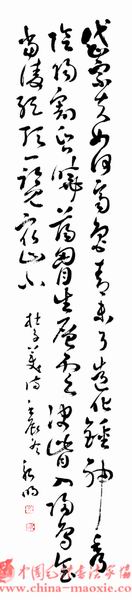 岱宗夫如何齊魯青未了造化鍾神秀
陰陽割昏曉蕩胸生層雲決眥入歸鳥會
當凌絕頂一覽眾山小 杜子美詩
中国毛
www.china-maoxie.co